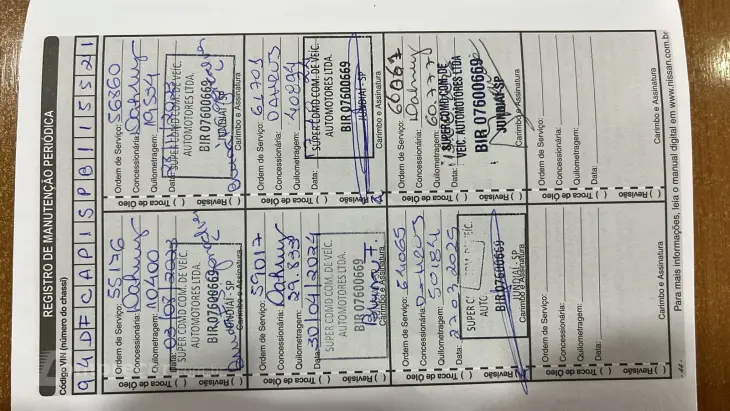 REGISTRO DE MANUTENÇÃO PERIÓDICA
Código VIN (número do chassi)
94DFCAP15PB115521
Ordem de Serviço: 55176
Concessionária: Dahruj
Quilometragem: 10400
Data: 03/08/2023
SUPER COMD COM. DE VEIC.
AUTOMOTORES LTDA.
BIR 07600669
JUNDIAÍ-SP
Carimbo e Assinatura
Revisão ( ) Troca de Óleo ( )
Ordem de Serviço: 56360
Concessionária: Dahruj
Quilometragem: 19594
Data:
SUPER COMD COM. DE VEIC.
AUTOMOTORES LTDA.
BIR 07600669
JUNDIAÍ-SP
Carimbo e Assinatura
Revisão ( ) Troca de Óleo ( )
Ordem de Serviço: 59017
Concessionária: Dahruj
Quilometragem: 29.839
Data: 30/04/2024
SUPER COMD COM. DE VEIC.
AUTOMOTORES LTDA.
BIR 07600669
Carimbo e Assinatura
Revisão ( ) Troca de Óleo ( )
Ordem de Serviço: 61701
Concessionária: Daveus
Quilometragem: 40894
Data:
SUPER COMD COM. DE VEIC.
AUTOMOTORES LTDA.
BIR 07600669
JUNDIAÍ-SP
Carimbo e Assinatura
Revisão ( ) Troca de Óleo ( )
Ordem de Serviço: 64065
Concessionária: Daveus
Quilometragem: 50184
Data: 27/03/2025
BIR 07600669
JUNDIAÍ-SP
Carimbo e Assinatura
Revisão ( ) Troca de Óleo ( )
Ordem de Serviço:
Concessionária: Dahruj
Quilometragem: 60.777
Data:
SUPER COMD COM. DE
VEIC. AUTOMOTORES LTDA
BIR 07600669
JUNDIAÍ-SP
Carimbo e Assinatura
Revisão ( ) Troca de Óleo ( )
Ordem de Serviço:
Concessionária:
Quilometragem:
Data:
Carimbo e Assinatura
Revisão ( ) Troca de Óleo ( )
Ordem de Serviço:
Concessionária:
Quilometragem:
Data:
Carimbo e Assinatura
Revisão ( ) Troca de Óleo ( )
Para mais informações, leia o manual digital em www.nissan.com.br